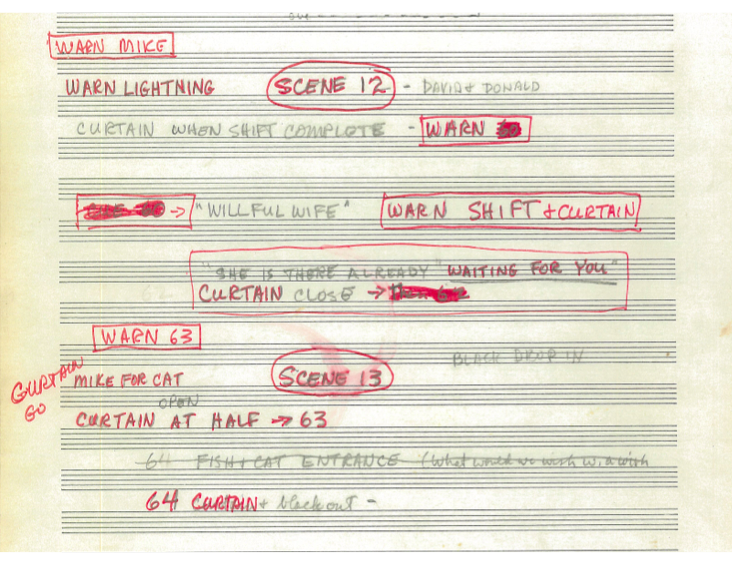 WARN MIKE
WARN LIGHTNING SCENE 12 - DAVID + DONALD
CURTAIN WHEN SHIFT COMPLETE - WARN
→ "WILLFUL WIFE" WARN SHIFT + CURTAIN
"SHE IS THERE ALREADY "WAITING FOR YOU"
CURTAIN CLOSE →
WARN 63
BLACK DROP IN
CURTAIN GO
MIKE FOR CAT SCENE 13
OPEN
CURTAIN AT HALF → 63
64 FISH + CAT ENTRANCE (What would we wish w. a wish
64 CURTAIN + blackout -